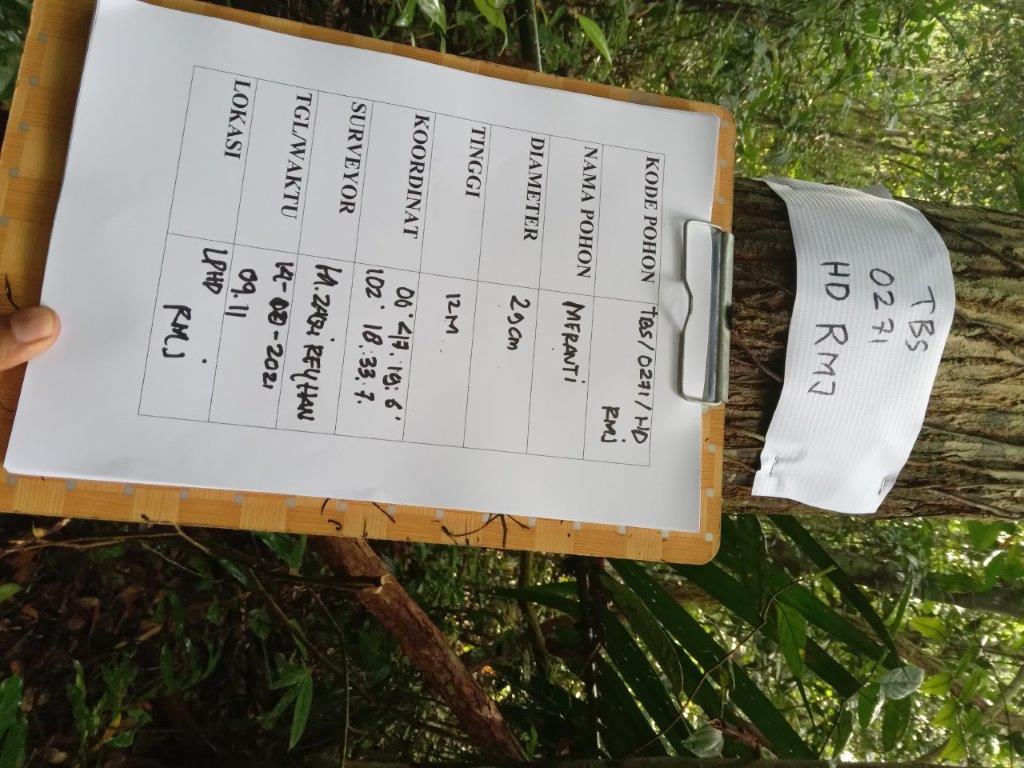 TBS
0271
HD RMJ
KODE POHON TBS/0271/HD
RMJ
NAMA POHON MERANTI
DIAMETER 29cm
TINGGI 12M
KOORDINAT 00° 47. 19: 6'
102° 18. 33. 7.
SURVEYOR M. ZAQI REYHAN
TGL/WAKTU 14- -2021
09.11
LOKASI LPHD
RMJ